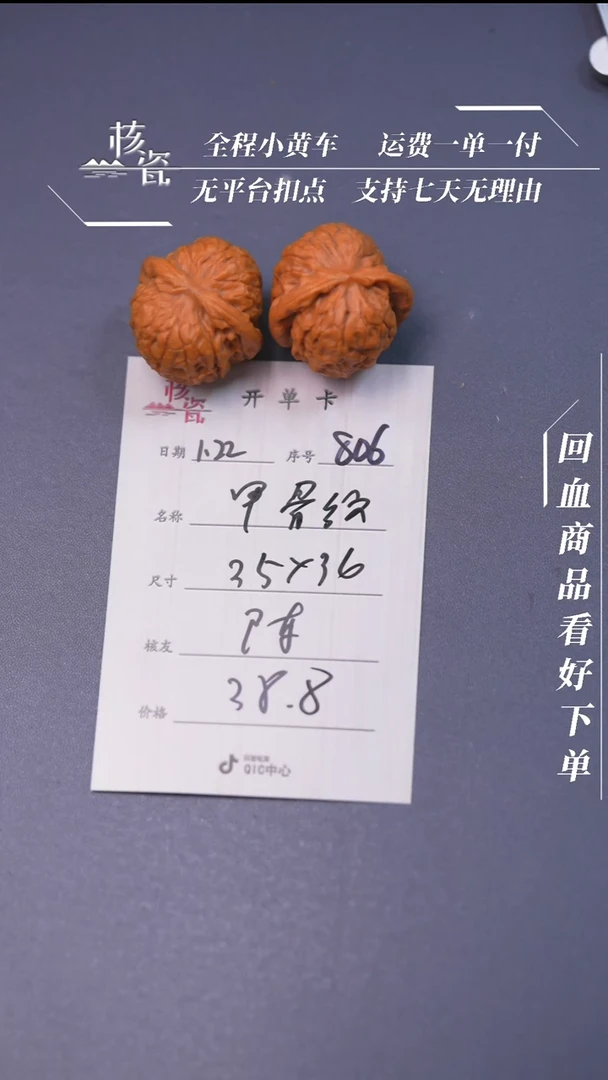 核瓷
全程小黄车 运费一单一付
无平台扣点 支持七天无理由
核瓷 开单卡
日期 1.22 序号 806
名称 甲骨纹
尺寸 35×36
核友
价格 38.8
QIC中心
回血商品看好下单